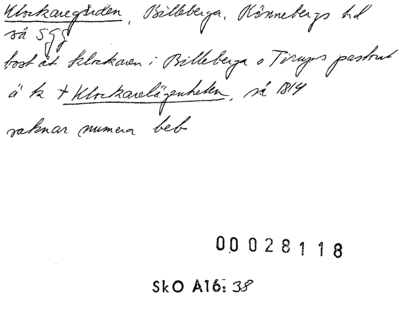 Klockaregården, Billeberga, Rönnebergs hd
så SGG
bost åt klockaren i Billeberga o Tirups pastorat
å k + Klockarelägenheten, så 1814
saknar numera beb
00028118
SkO A16: 38